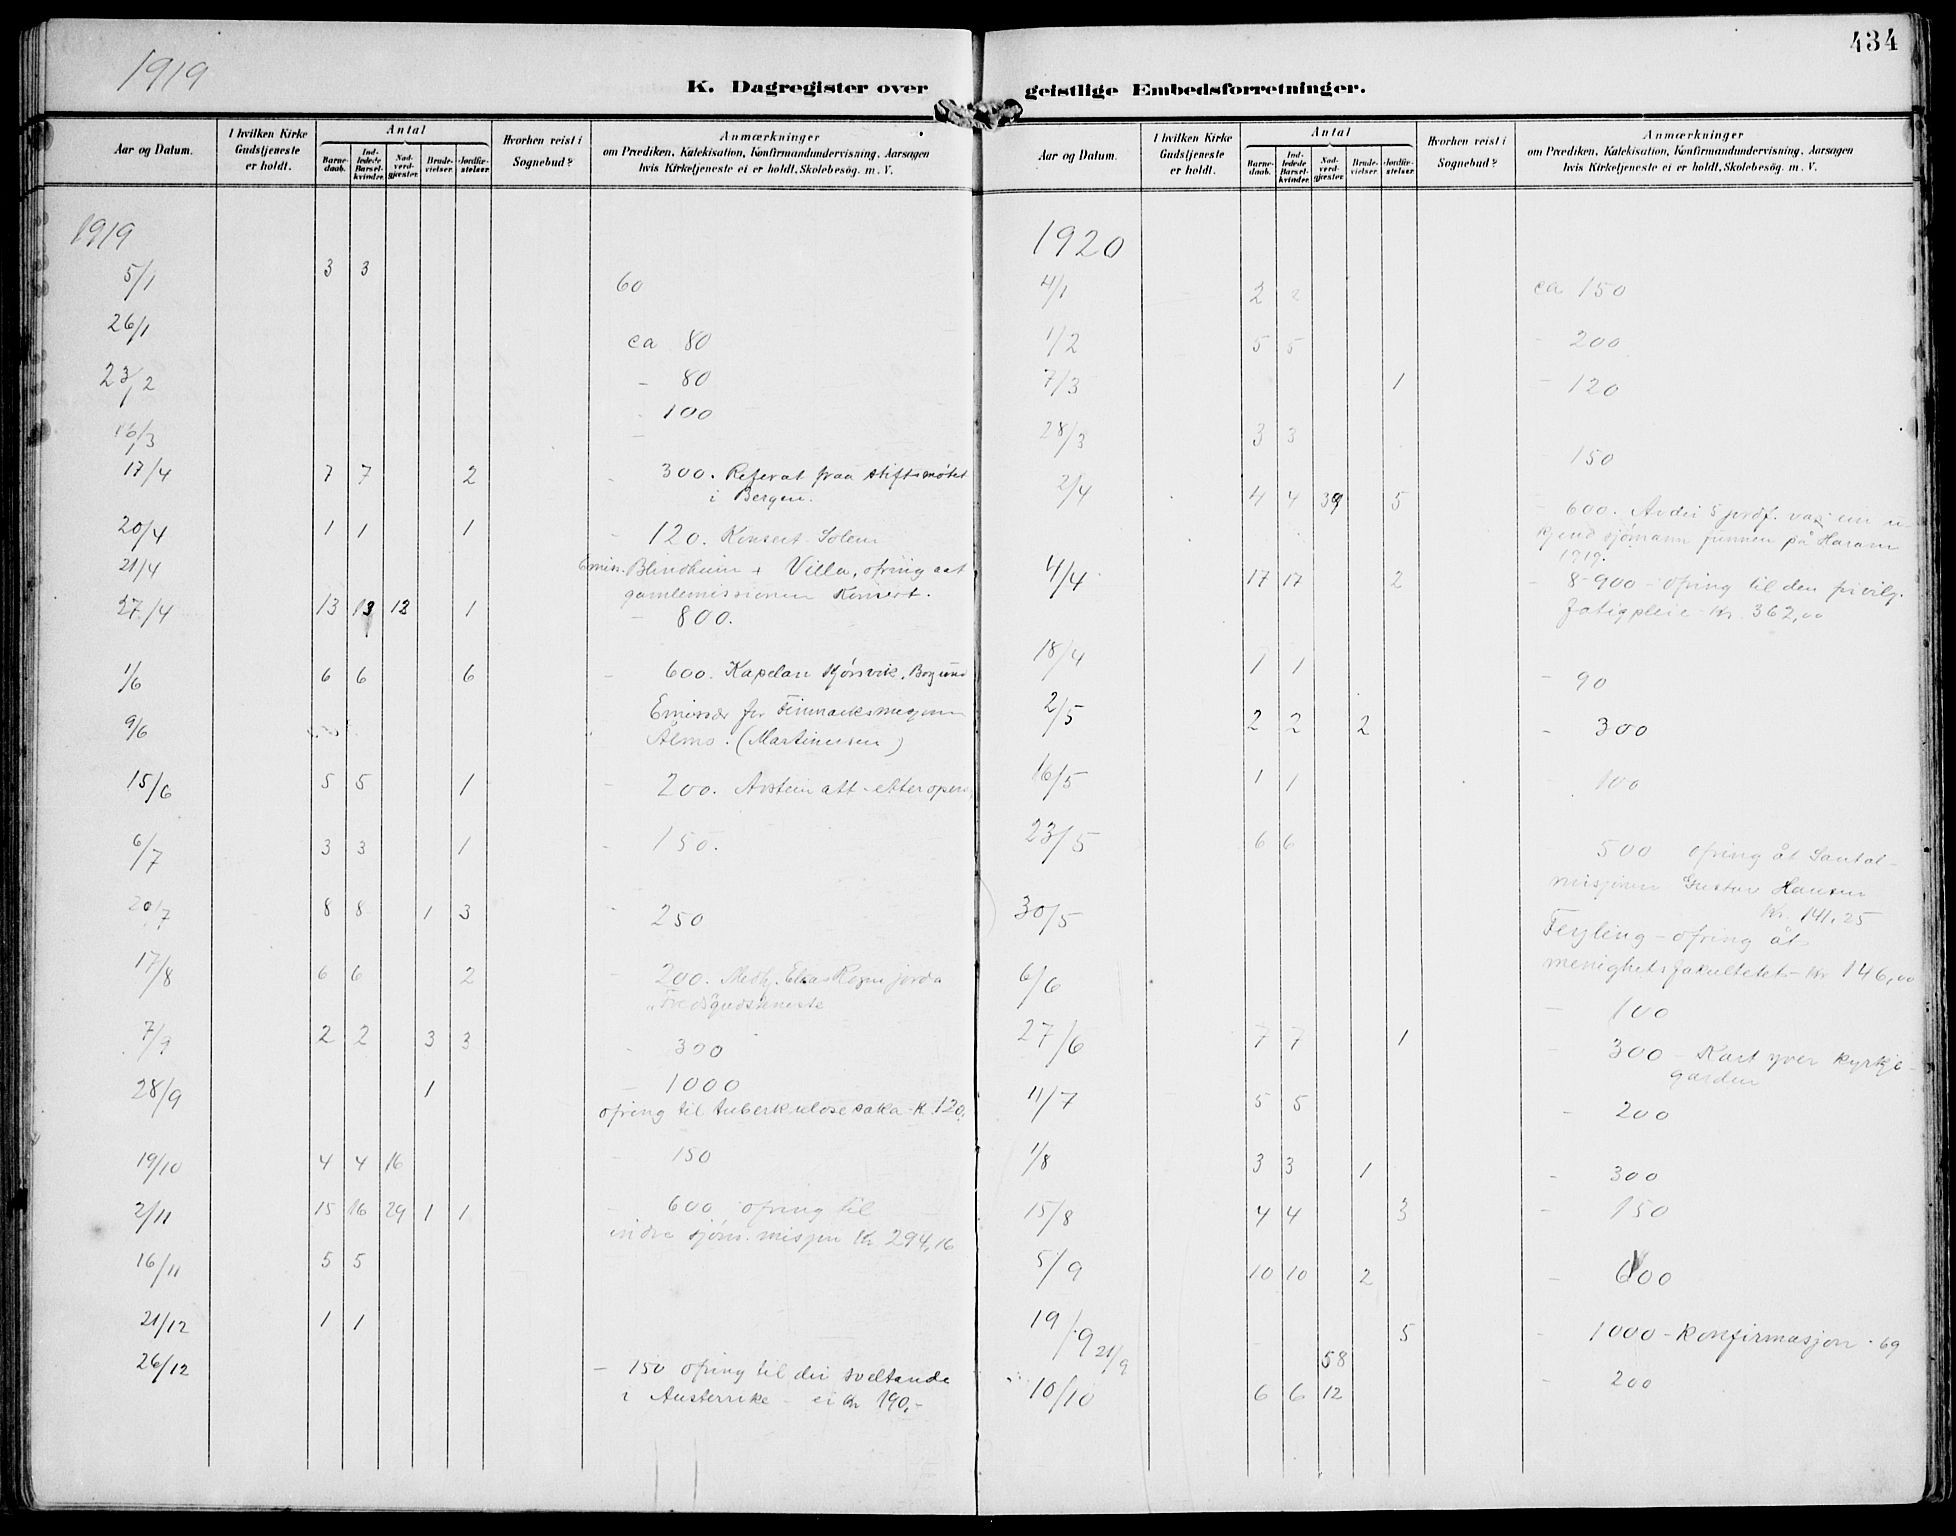 434
1919
K. Dagregister over geistlige Embedsforretninger.
Aar og Datum. I hvilken Kirke Gudstjeneste er holdt. Antal Barne-daab. Ind-ledede Barsel-kvinder. Nad-verd-gjæster. Brude-vielser. Jordfæ-stelser. Hvorhen reist i Sognebud? Anmærkninger om Prædiken, Katekisation, Konfirmandundervisning, Aarsagen hvis Kirketjeneste ei er holdt, Skolebesøg. m. V.
1919
5/1 3 3 60
26/1 ca 80
23/2 - 80
100
16/3 -
17/4 7 7 2 - 300. Referat fraa stiftsmøtet
i Bergen.
20/4 1 1 1 - 120. Konsert Solem
21/4 Emis. Blindheim + Villa, ofring aat
gamlemissionen Konsert.
27/4 13 13 12 1 - 800.
1/6 6 6 6 - 600. Kapelan Bogund
9/6 Emissær for
- Alms. (Martinusen)
15/6 5 5 1 - 200. att
6/7 3 3 1 - 150.
20/7 8 8 1 3 - 250
17/8 6 6 2 - 200. Medhj. Elias Rogne jorda
7/9 2 2 3 3 - 300
28/9 1 - 1000
ofring til tuberkulosesaka - K. 120.
19/10 4 4 16 - 150
2/11 15 16 29 1 1 - 600 ofring til
indre sjøm. misjon Kr 294,16
16/11 5 5
21/12 1 1
26/12 - 150 ofring til dei sveltande
i Austerrike - ei Kr 190,-
Aar og Datum. I hvilken Kirke Gudstjeneste er holdt. Antal Barne-daab. Ind-ledede Barsel-kvinder. Nad-verd-gjæster. Brude-vielser. Jordfæ-stelser. Hvorhen reist i Sognebud? Anmærkninger om Prædiken, Katekisation, Konfirmandundervisning, Aarsagen hvis Kirketjeneste ei er holdt, Skolebesøg. m. V.
1920
4/1 2 2 ca 150
1/2 5 5 - 200
7/3 1 - 120
28/3 3 3 - 150
2/4 4 4 39 5 - 600. Av dei 5 jordf. var ein u-
kjend sjømann funnen på Haram
1919.
4/4 17 17 2 - 8-900 - ofring til den frivilj.
fatigpleie - Kr. 362,00
18/4 1 1 - 90
2/5 2 2 2 - 300
16/5 1 1 - 100
23/5 6 6 500 ofring åt Santal-
misjonen Gustav Hansen
Kr. 141,25
30/5 - ofring åt
menighetsfakultetet - Kr 146,00
6/6 - 100
27/6 7 7 1 - 300 - Kart yver kyrkje-
garden
11/7 5 5 - 200
1/8 3 3 1 - 300
15/8 4 4 3 - 150
5/9 10 10 2 - 600
19/9 5 - 1000 - konfirmasjon - 69
21/9 58
10/10 6 6 12 - 200